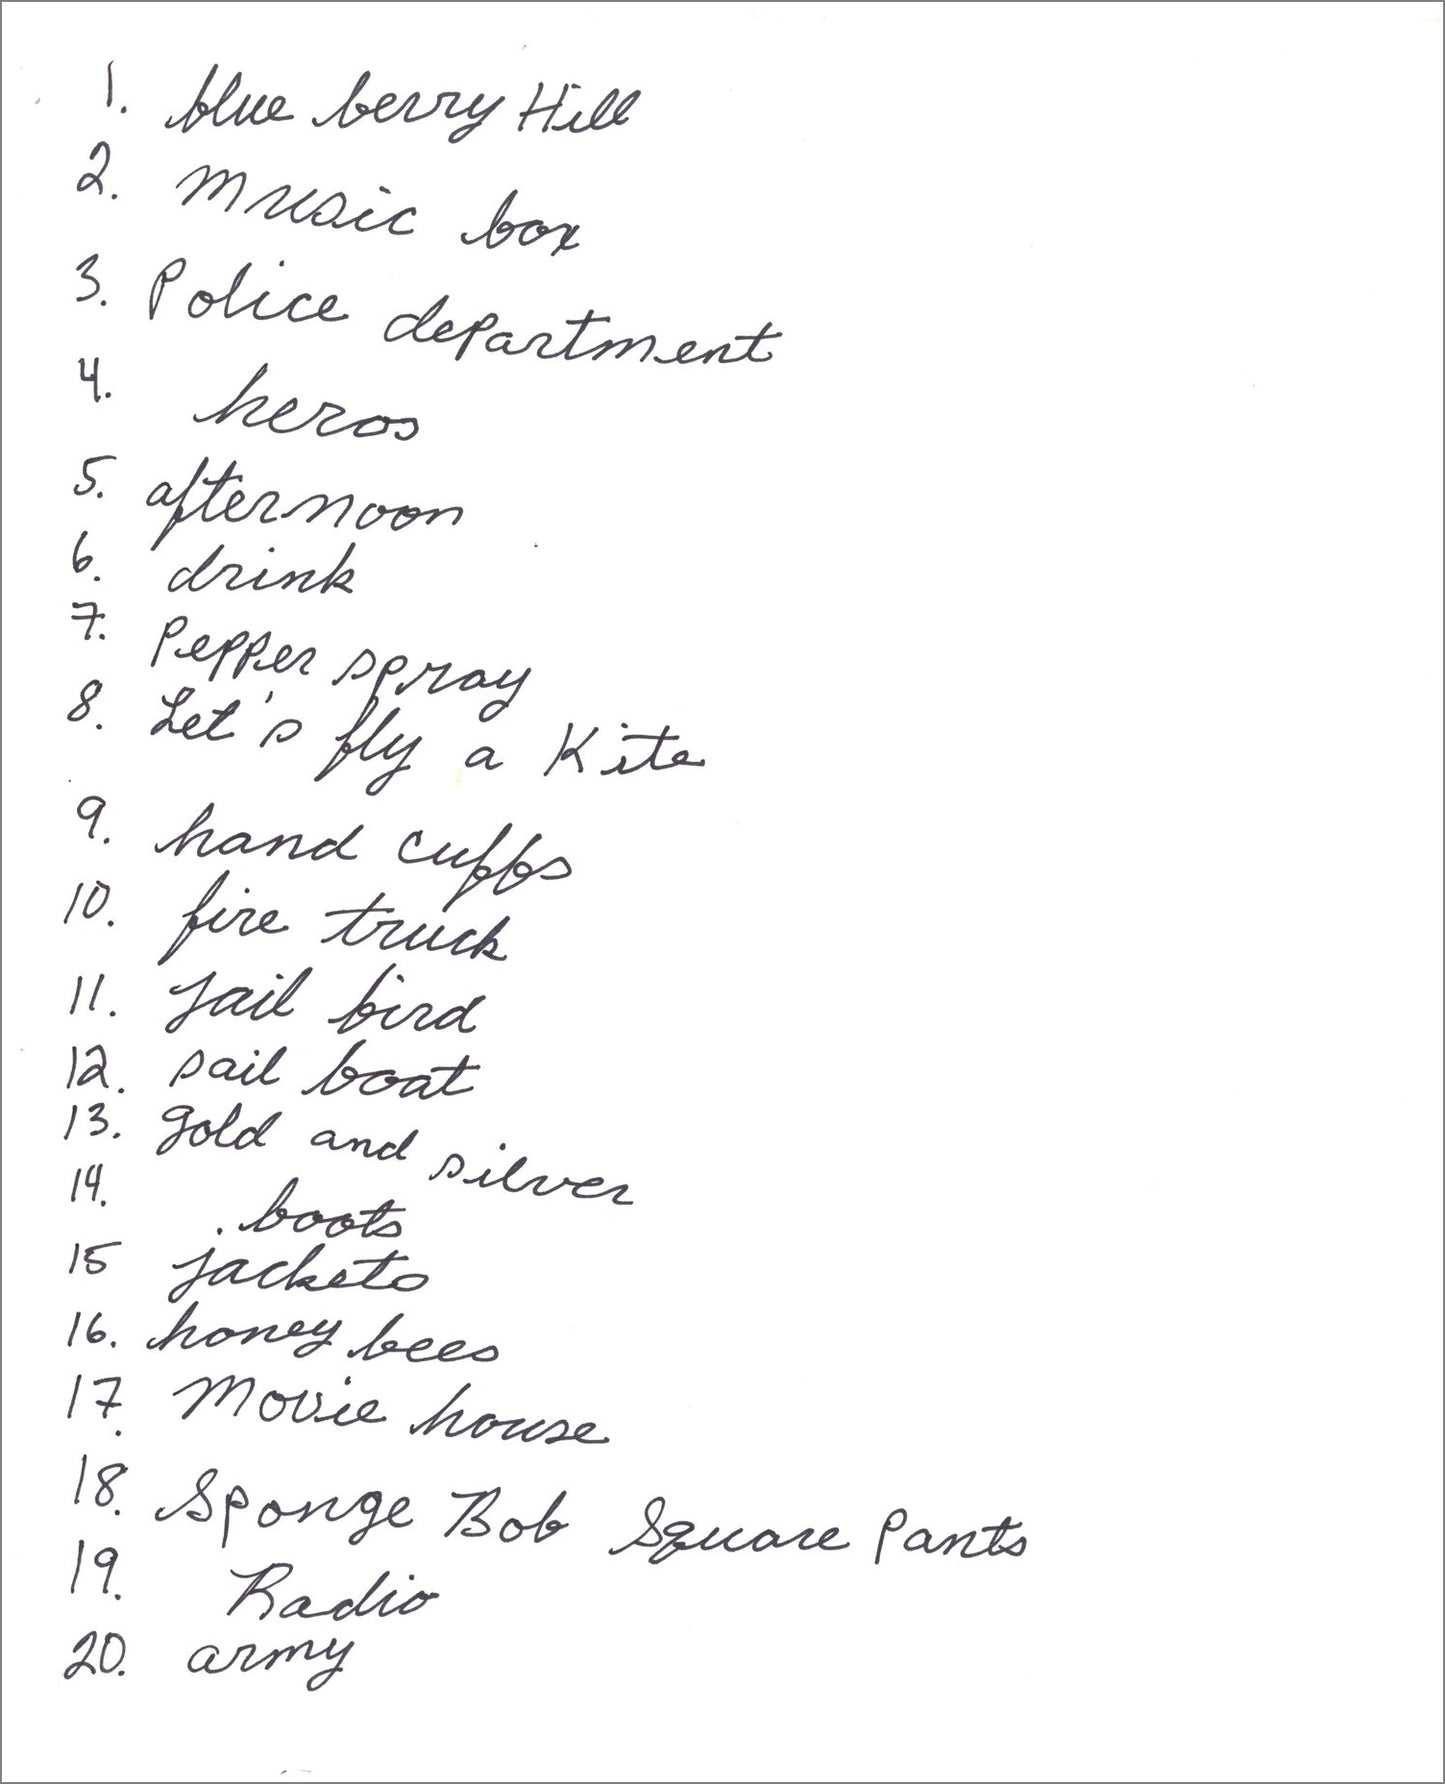 1. blue berry Hill
2. Music box
3. Police department
4. heros
5. afternoon
6. drink
7. Pepper spray
8. Let's fly a Kite
9. hand cuffs
10. fire truck
11. Jail bird
12. sail boat
13. gold and silver
14. boots
15 jackets
16. honey bees
17. Movie house
18. Sponge Bob Square Pants
19. Radio
20. army